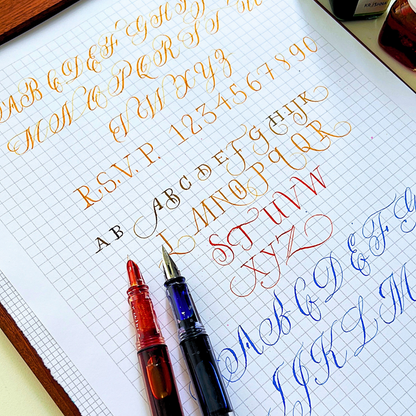 A B C D E F G H I J
M N O P Q R S T U
V W X Y Z
R.S.V.P. 1234567890
A B A B C D E F G H I J K
L M N O P Q R
S T U V W
X Y Z
A B C D E F G
I J K L M